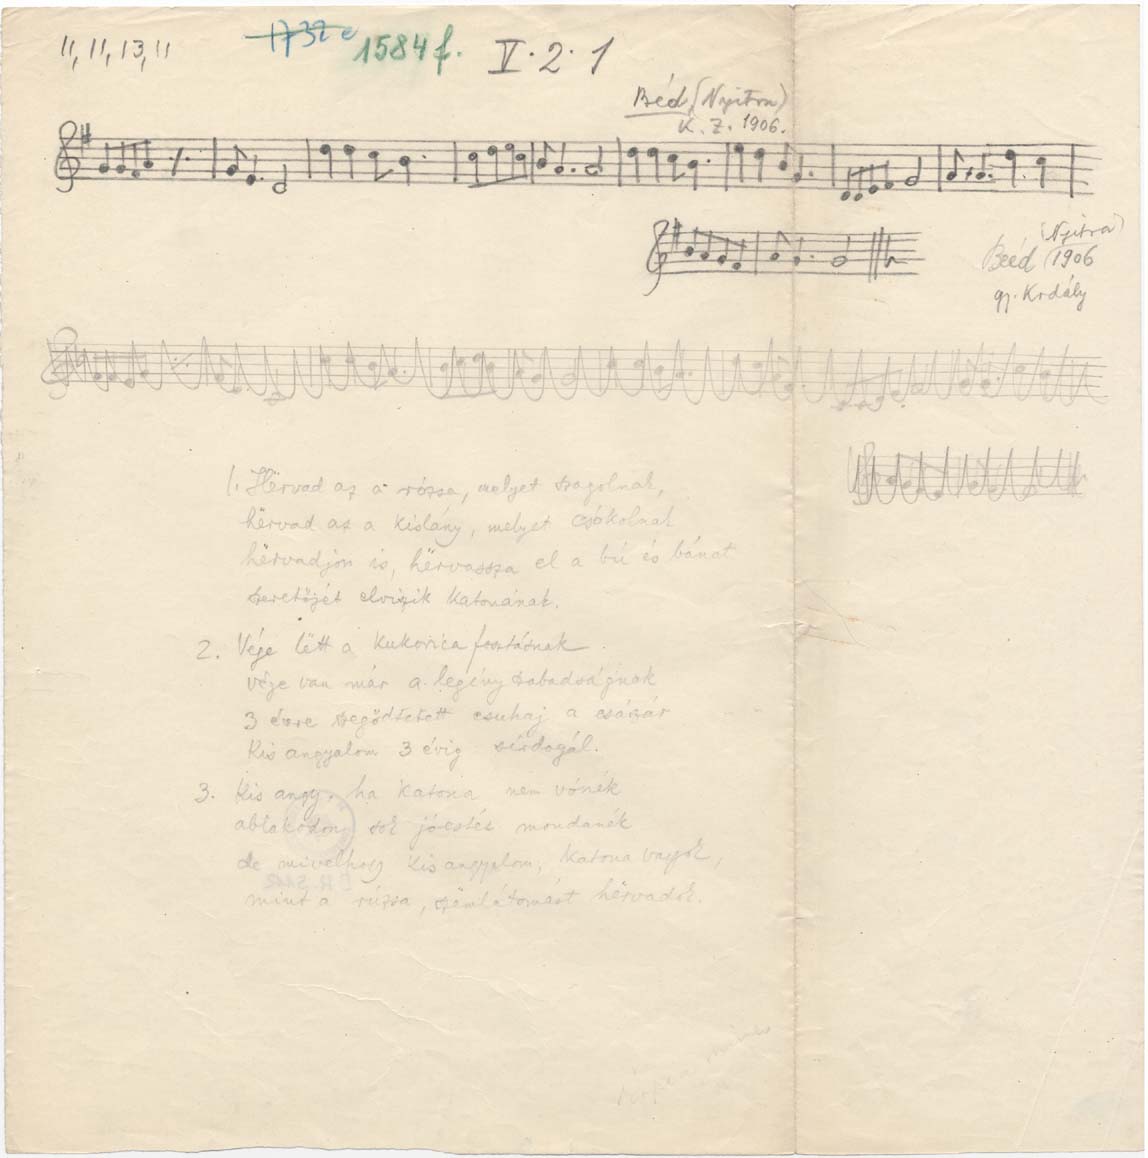 11, 11, 13, 11
1732 e
1584 f.
V. 2. 1
Béd (Nyitra)
K. Z. 1906.
(Nyitra)
Bééd 1906
gy. Kodály
1. Hërvad az a rózsa, melyet szagolnak,
hërvad az a kislány, melyet csókolnak
hërvadjon is, hërvassza el a bú és bánat
szeretőjét elviszik katonának.
2. Vége lëtt a kukorica fosztásnak
vége van már a legény szabadságnak
3 évre szegődtetett csuhaj a császár
Kis angyalom 3 évig sírdogál.
3. Kis angy. ha katona nem vónék
ablakodon sok jóestét mondanék
de mivelhogy kis angyalom, katona vagyok,
mint a rúzsa, szëmlátomást hërvadok.